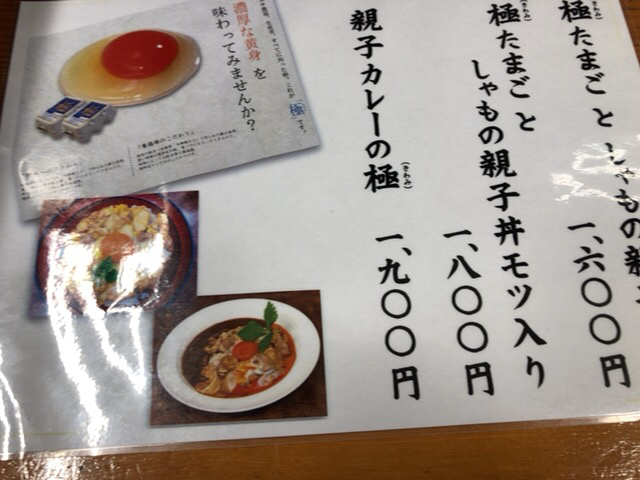 極たまご と しゃもの親
きわみ
一、六〇〇円
極たまご と
きわみ
しゃもの親子丼モツ入り
一、八〇〇円
親子カレーの極
きわみ
一、九〇〇円
これが「極」です。
濃厚な黄身 を
味わってみませんか？